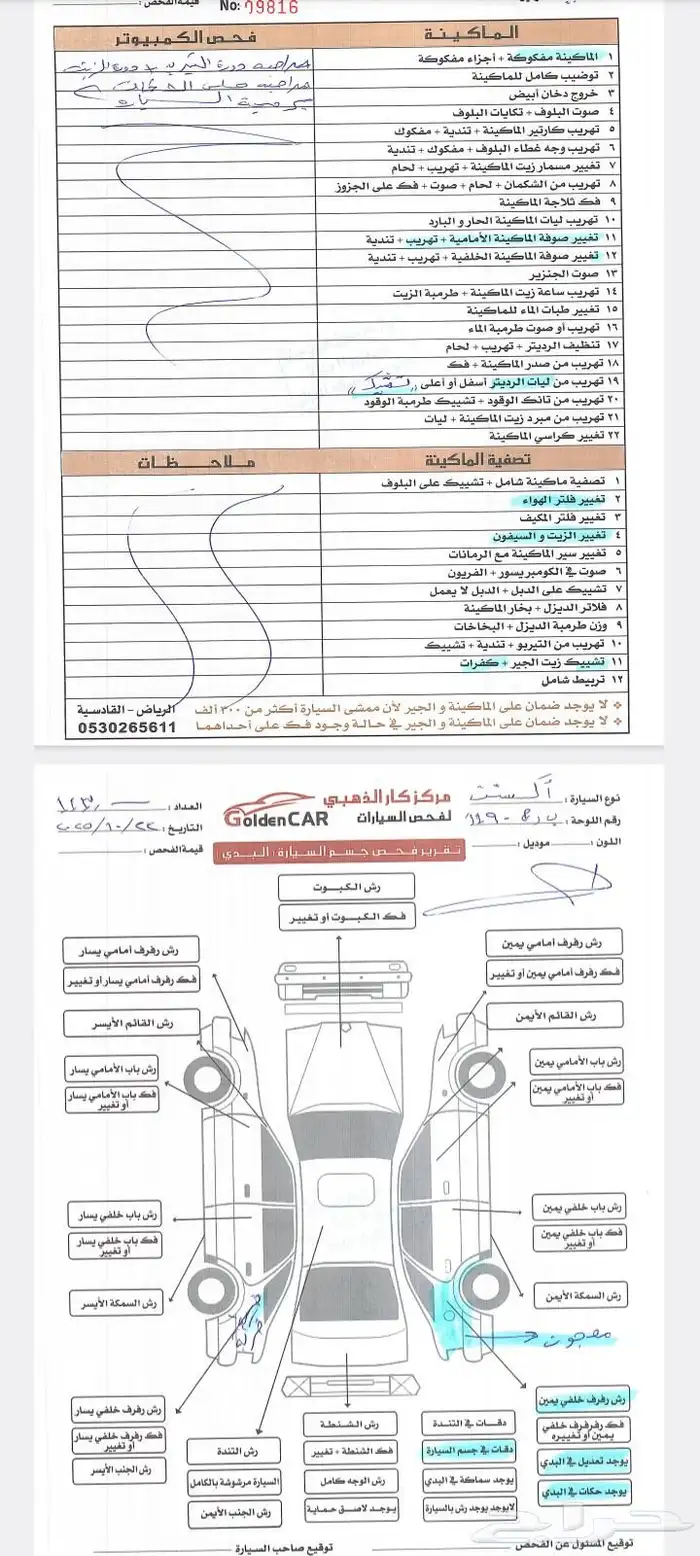 قيمة الفحص:
No: 09816
الماكينة
فحص الكمبيوتر
١ الماكينة مفكوكة + أجزاء مفكوكة
٢ توضيب كامل للماكينة
٣ خروج دخان أبيض
٤ صوت البلوف + تكايات البلوف
٥ تهريب كارتير الماكينة + تندية + مفكوك
٦ تهريب وجه غطاء البلوف + مفكوك + تندية
٧ تغيير مسمار زيت الماكينة + تهريب + لحام
٨ تهريب من الشكمان + لحام + صوت + فك على الجزوز
٩ فك ثلاجة الماكينة
١٠ تهريب ليات الماكينة الحار و البارد
١١ تغيير صوفة الماكينة الأمامية + تهريب + تندية
١٢ تغيير صوفة الماكينة الخلفية + تهريب + تندية
١٣ صوت الجنزير
١٤ تهريب ساعة زيت الماكينة + طرمبة الزيت
١٥ تغيير طبات الماء للماكينة
١٦ تهريب أو صوت طرمبة الماء
١٧ تنظيف الرديتر + تهريب + لحام
١٨ تهريب من صدر الماكينة + فك
١٩ تهريب من ليات الرديتر أسفل أو أعلى "تشيك"
٢٠ تهريب من تانك الوقود + تشييك طرمبة الوقود
٢١ تهريب من مبرد زيت الماكينة + ليات
٢٢ تغيير كراسي الماكينة
تصفية الماكينة
ملاحظات
١ تصفية ماكينة شامل + تشييك على البلوف
٢ تغيير فلتر الهواء
٣ تغيير فلتر المكيف
٤ تغيير الزيت و السيفون
٥ تغيير سير الماكينة مع الرمانات
٦ صوت في الكومبريسور + الفريون
٧ تشييك على الدبل + الدبل لا يعمل
٨ فلاتر الديزل + بخار الماكينة
٩ وزن طرمبة الديزل + البخاخات
١٠ تهريب من التيربو + تندية + تشييك
١١ تشييك زيت الجير + كفرات
١٢ تربيط شامل
❖ لا يوجد ضمان على الماكينة و الجير لأن ممشى السيارة أكثر من ٣٠٠ ألف
❖ لا يوجد ضمان على الماكينة و الجير في حالة وجود فك على أحداهما
الرياض - القادسية
0530265611
نوع السيارة: أكسنت
رقم اللوحة:
اللون:
موديل:
مركز كار الذهبي
لفحص السيارات
GoldenCAR
تقرير فحص جسم السيارة (البدي)
العداد:
التاريخ: ٢٠٢٥/١٠/٢٢
قيمة الفحص:
رش الكبوت
فك الكبوت أو تغيير
رش رفرف أمامي يمين
فك رفرف أمامي يمين أو تغيير
رش القائم الأيمن
رش باب الأمامي يمين
فك باب الأمامي يمين أو تغيير
رش باب خلفي يمين
فك باب خلفي يمين أو تغيير
رش السمكة الأيمن
معجون
رش رفرف أمامي يسار
فك رفرف أمامي يسار أو تغيير
رش القائم الأيسر
رش باب الأمامي يسار
فك باب الأمامي يسار أو تغيير
رش باب خلفي يسار
فك باب خلفي يسار أو تغيير
رش السمكة الأيسر
رش رفرف خلفي يمين
فك رفرفرف خلفي يمين أو تغييره
يوجد تعديل في البدي
يوجد حكات في البدي
دقات في التندة
دقات في جسم السيارة
يوجد سماكة في البدي
لايوجد يوجد رش بالسيارة
رش الشنطة
فك الشنطة + تغيير
رش الوجه كامل
يوجد لاصق حماية
رش التندة
السيارة مرشوشة بالكامل
رش الجنب الأيمن
رش رفرف خلفي يسار
فك رفرف خلفي يسار أو تغيير
رش الجنب الأيسر
توقيع المسئول عن الفحص
توقيع صاحب السيارة
حراج